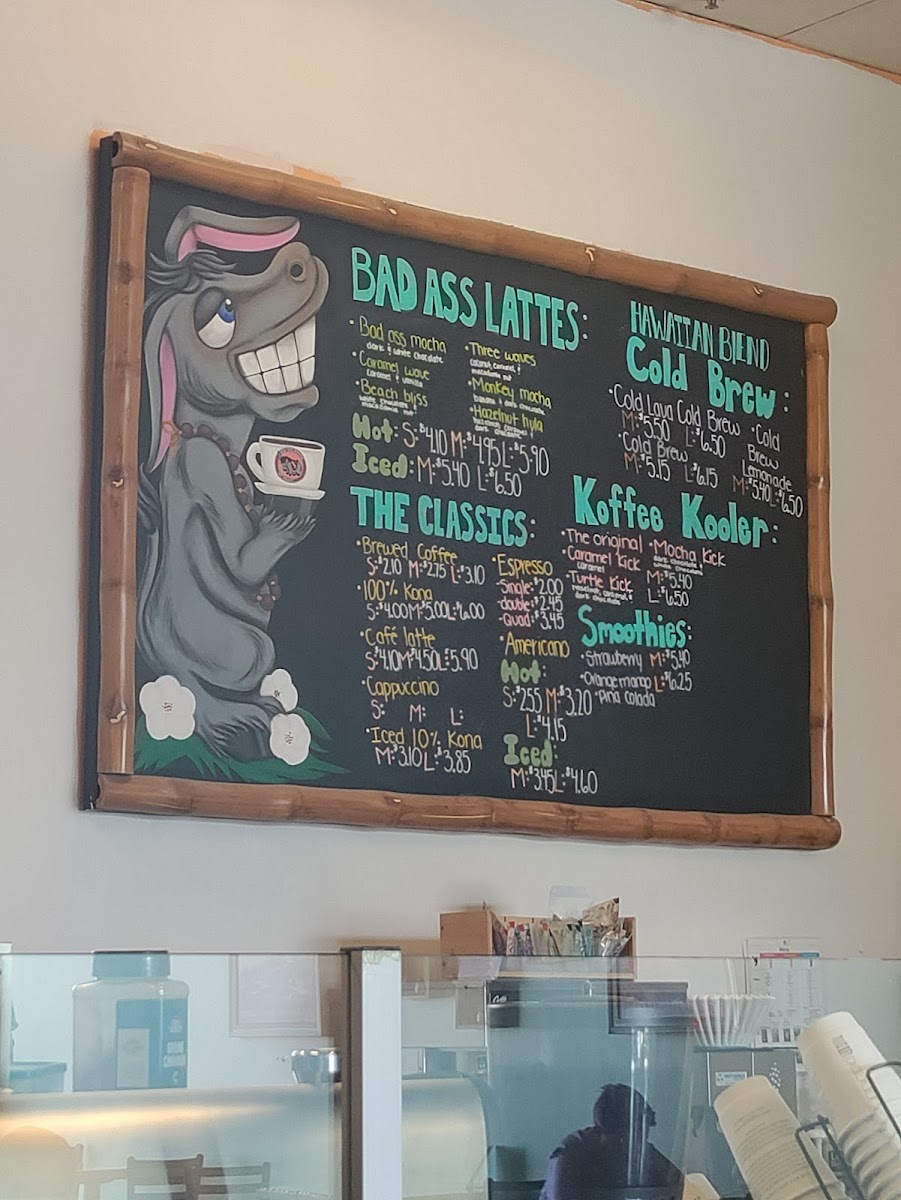 BAD ASS LATTES:
• Bad ass mocha
dark & white chocolate
• Caramel wave
Caramel & vanilla
• Beach bliss
white chocolate &
macadamia nut
• Three waves
Coconut, Caramel, &
macadamia nut
• Monkey mocha
banana & dark chocolate
• Hazelnut hula
hazelnut, caramel &
dark chocolate
Hot: S:$4.10 M:$4.95 L:$5.90
Iced: M:$5.40 L:$6.50
THE CLASSICS:
• Brewed Coffee
S:$2.10 M:$2.75 L:$3.10
• 100% Kona
S:$4.00 M:$5.00 L:$6.00
• Café latte
S:$4.10 M:$4.50 L:$5.90
• Cappuccino
S: M: L:
• Iced 10% Kona
M:$3.10 L:$3.85
• Espresso
Single:$2.00
double:$2.45
Quad:$3.45
• Americano
Hot:
S:$2.55 M:$3.20
L:$4.15
Iced:
M:$3.45 L:$4.60
HAWAIIAN BLEND
Cold Brew:
• Cold Lava Cold Brew
M:$5.50 L:$6.50
• Cold Brew
M:$5.15 L:$6.15
• Cold
Brew
Lemonade
M:$5.40 L:$6.50
Koffee Kooler:
• The original
• Caramel Kick
Caramel
• Turtle Kick
hazelnut, caramel, &
dark chocolate
• Mocha Kick
dark chocolate &
white chocolate
M:$5.40
L:$6.50
Smoothies:
• Strawberry M:$5.40
• Orange mango L:$6.25
• Piña colada